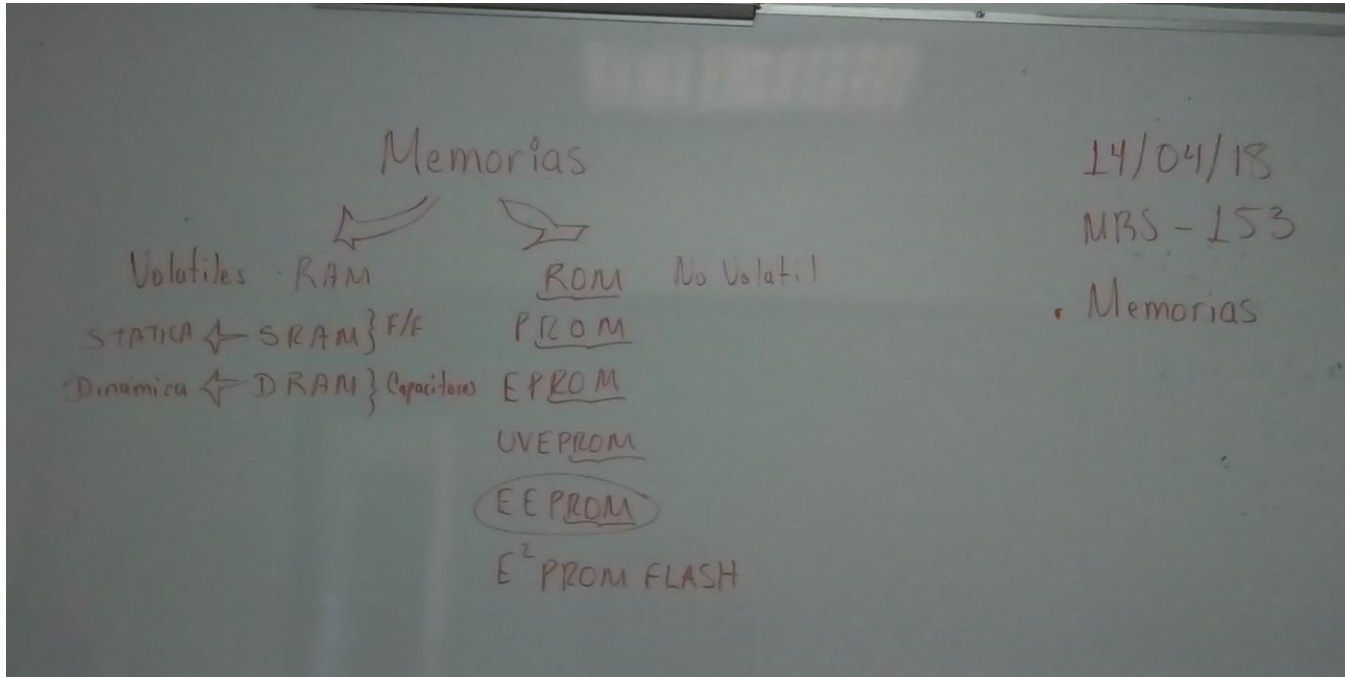 Memorias
Volatiles - RAM
STATICA ← SRAM } F/F
Dinamica ← DRAM } Capacitores
ROM No Volatil
PROM
EPROM
UVEPROM
EEPROM
E² PROM FLASH
14/04/18
MBS - 153
• Memorias